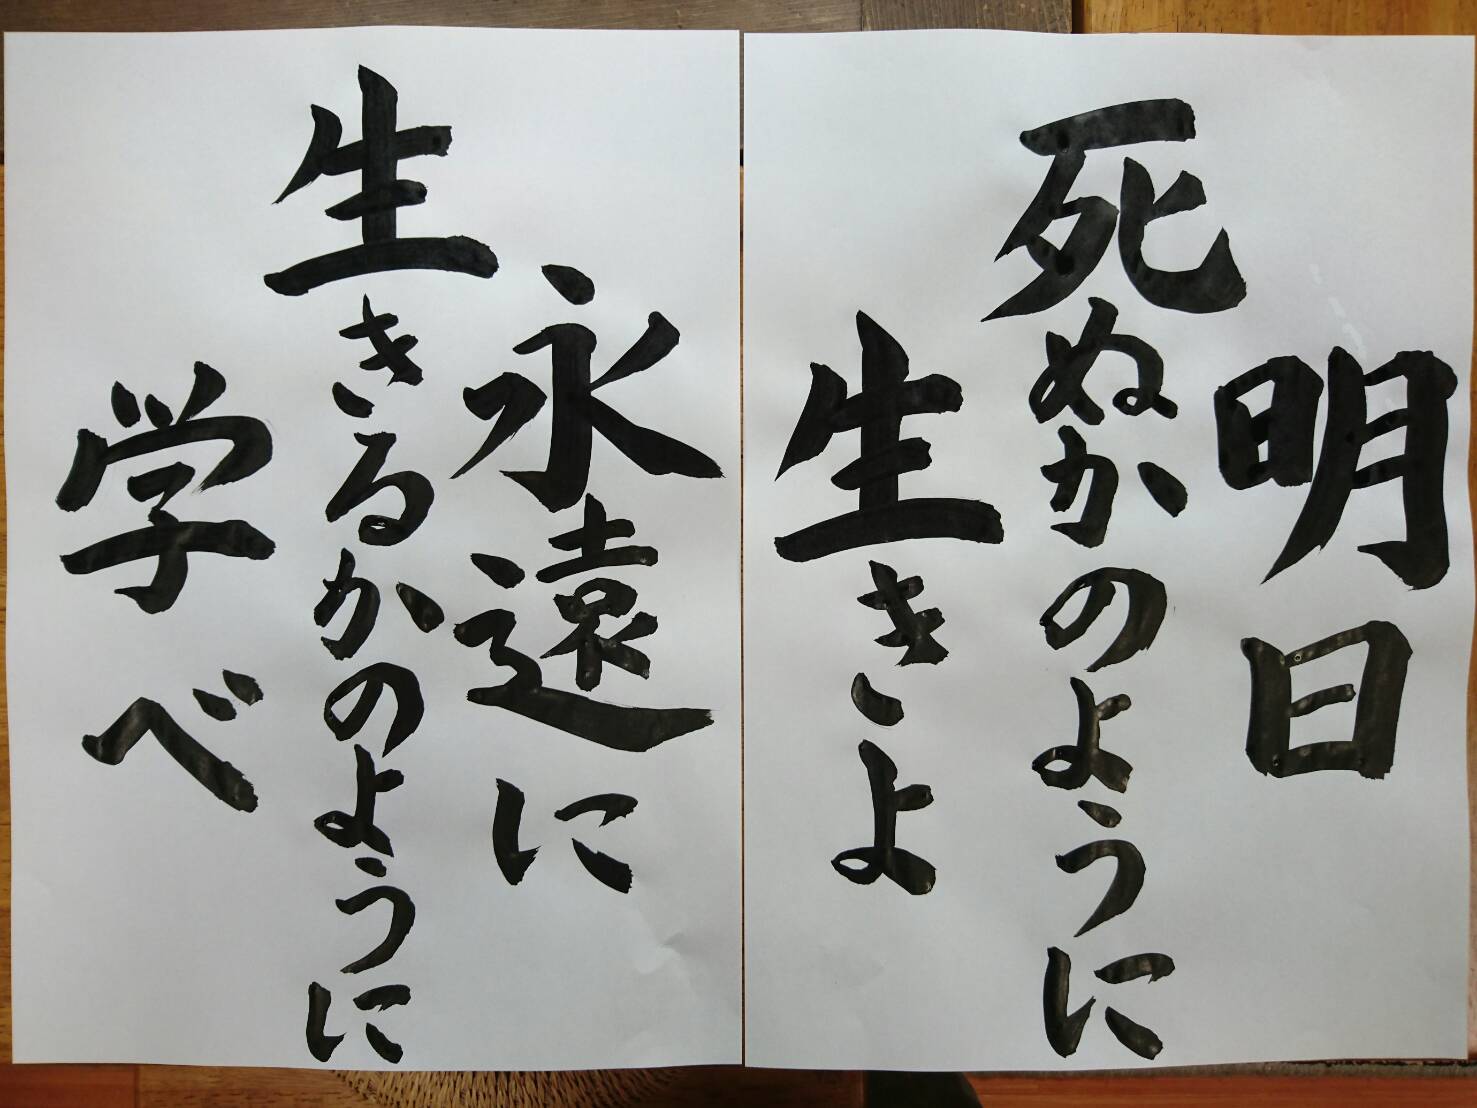 明日
死ぬかのように
生きよ
永遠に
生きるかのように
学べ